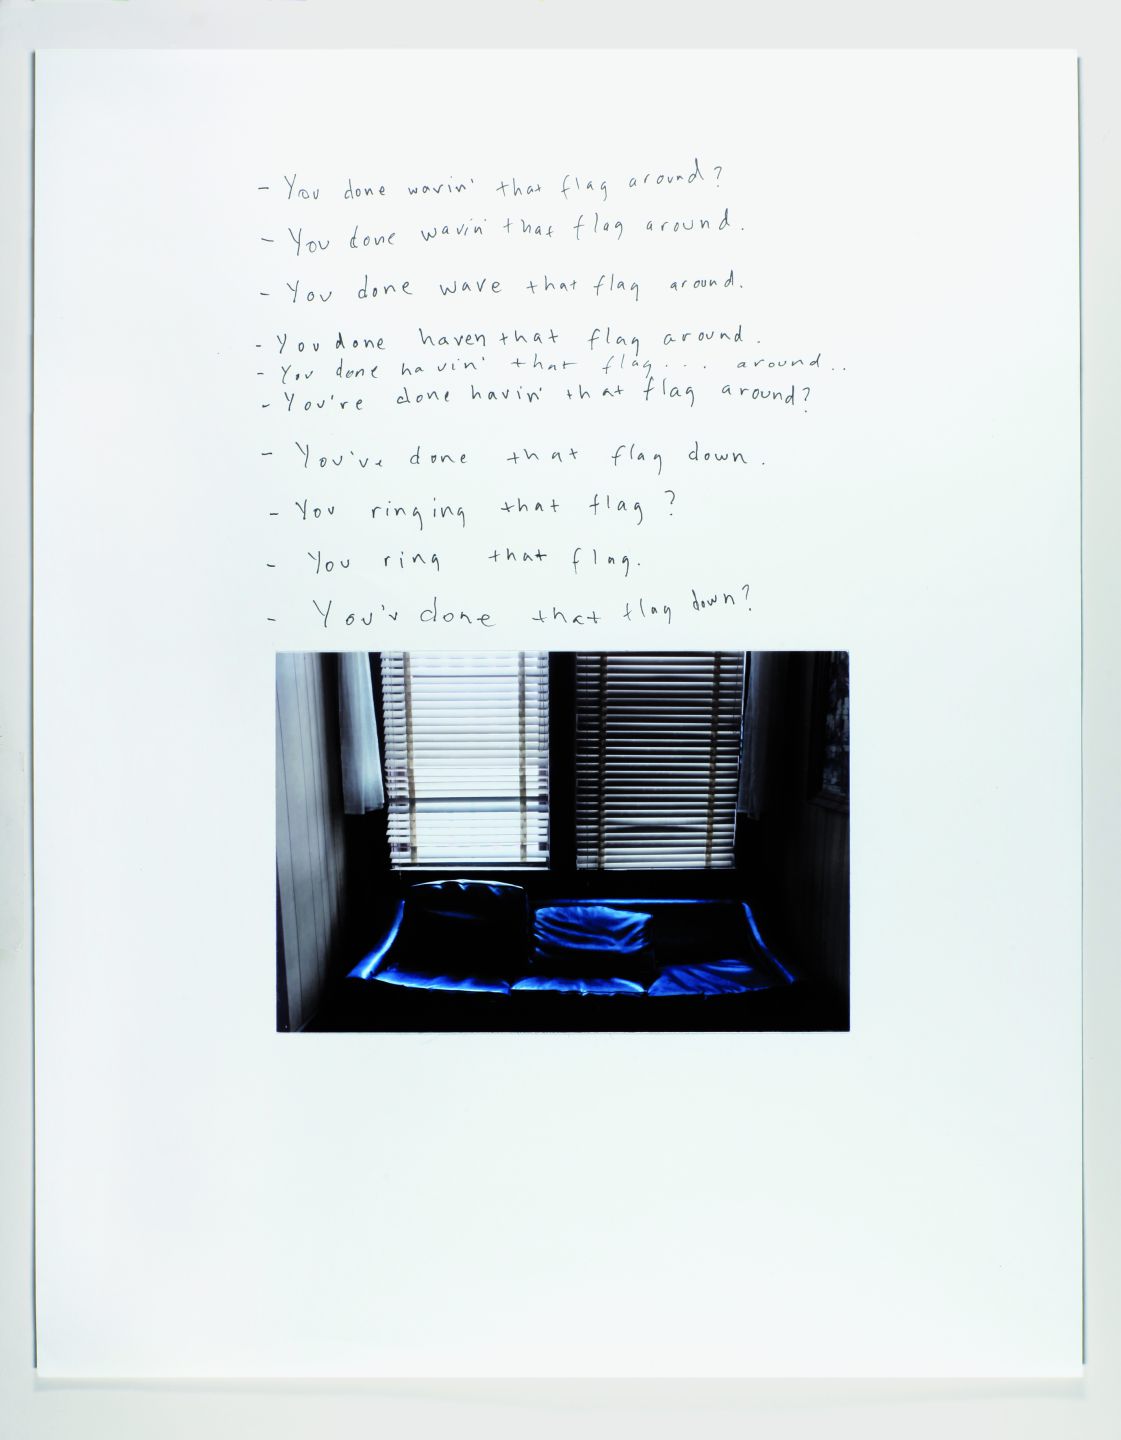 - You done wavin' that flag around?
- You done wavin' that flag around.
- You done wave that flag around.
- You done haven that flag around.
- You done havin' that flag... around..
- You're done havin' that flag around?
- You've done that flag down.
- You ringing that flag?
- You ring that flag.
- You'v done that flag down?